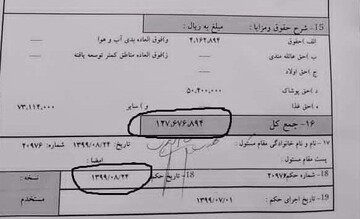 15- شرح حقوق ومزایا: مبلغ به ریال :
الف )حقوق ۴,۱۶۲,۸۹۴ و)فوق العاده بدی آب و هوا
ب )حق عائله مندی ز)فوق العاده مناطق کمتر توسعه یافته
ج )حق اولاد
د )حق پوشاک ۵۰,۴۰۰,۰۰۰
ه )حق غذا و ) سایر ۷۳,۱۱۴,۰۰۰
۱۶- جمع کل ۱۲۷,۶۷۶,۸۹۴
۱۷- نام و نام خانوادگی مقام مسئول تاریخ ۱۳۹۹/۰۸/۲۴ شماره: ۲۰۹۷۶
پست مقام مسئول امضا :
18- شماره حکم:۲۰۹۷۶ تاریخ حکم: ۱۳۹۹/۰۸/۲۴ نسخه :
19- تاریخ اجرای حکم : ۱۳۹۹/۰۷/۰۱ مستخدم